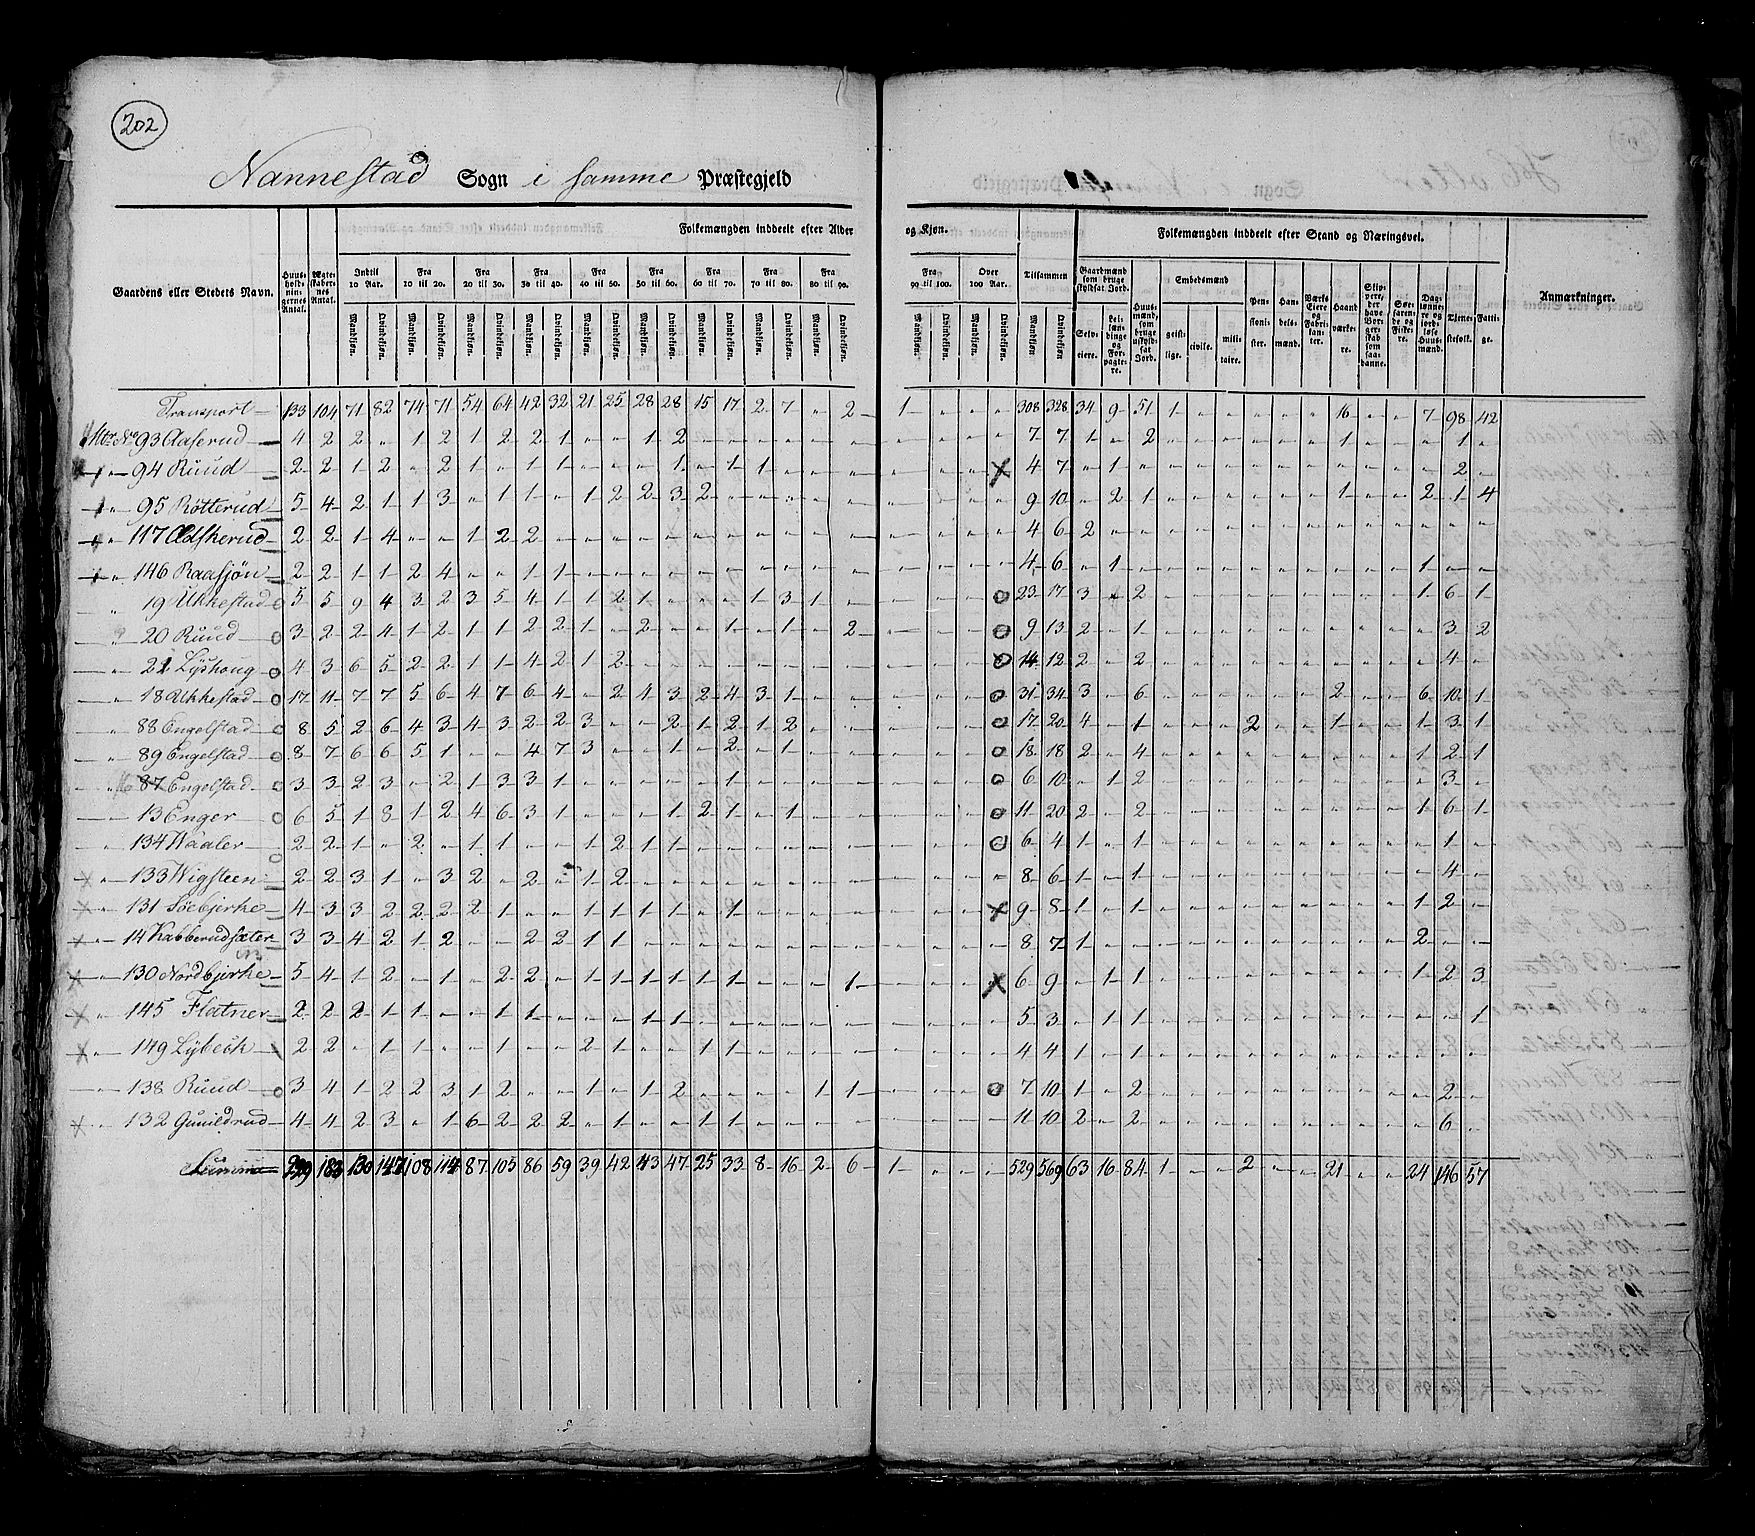 202
Nannestad Sogn i samme Præstegjeld
Folkemængden inddeelt efter Alder og Kjøn.
Folkemængden inddeelt efter Stand og Næringsvei.
Gaardens eller Stedets Navn.
Huusholdningernes Antal.
Ægteskabernes Antal.
Indtil 10 Aar.
Fra 10 til 20.
Fra 20 til 30.
Fra 30 til 40.
Fra 40 til 50.
Fra 50 til 60.
Fra 60 til 70.
Fra 70 til 80.
Fra 80 til 90.
Fra 90 til 100.
Over 100 Aar.
Tilsammen
Mandkjøn. Qvindekjøn.
Gaardmænd som bruge skyldsat Jord.
Selveiere.
Leilændinge og Forpagtere.
Huusmænd, som bruge uskyldsat Jord.
Embedsmænd
geistlige.
civile.
militaire.
Pensionister.
Handelsmænd.
Værks Eiere og Fabrikanter.
Haandværkere.
Søefarende og Fiskere.
Tjenestefolk.
Fattige.
Anmærkninger.
Transport 133 104 71 82 74 71 54 64 42 32 21 25 28 28 15 17 2 7 " 2 1 " " " 308 328 34 9 51 1 " " " " " 16 " " 7 98 42
Mtr No 93 Aaserud 4 2 2 " 1 2 1 2 2 1 " " 1 2 7 7 1 " 2 1 1
94 Ruud 2 2 1 2 " 2 1 " 1 1 " " " 1 " 1 1 4 7 " 1 2
95 Røtterud 5 4 2 1 1 3 " 1 1 " 1 2 2 3 2 9 10 " 2 1 1 2 1 4
117 Ødskerud 2 2 1 4 " " 1 2 2 4 6 2
146 Raasjøn 2 2 1 1 2 4 " " 1 1 4 6 " 1 1
19 Ukkestad 5 5 9 4 3 2 3 5 4 1 1 2 1 " " " 1 3 1 23 17 3 " 2 1 6 1
20 Ruud 3 2 2 4 1 2 1 1 2 2 1 " 2 " " 1 " 1 " 2 9 13 2 " 1 3 2
21 Lyshoug 4 3 6 5 2 2 1 1 4 2 1 2 14 12 2 " 2 4
18 Ukkestad 17 11 7 7 5 6 4 7 6 4 " 2 4 3 2 4 3 1 31 34 3 " 6 2 6 10 1
88 Engelstad 8 5 2 6 4 3 4 3 2 2 3 " " 2 1 2 1 2 17 20 4 " 1 2 1 1 3 1
89 Engelstad 8 7 6 6 5 1 " " 4 7 3 " " 1 " 2 " 1 18 18 2 " 4 1 2 1
87 Engelstad 3 3 2 3 " 2 1 3 3 1 " " " " " 1 6 10 " 1 2 3
13 Enger 6 5 1 8 1 2 4 6 3 1 " " " 1 2 1 " 1 11 20 2 " 2 1 6 1
134 Waaler 2 2 1 " 2 " 1 1 " " 1 2 1 1 6 4 1 " 1 1
133 Wigsteen 2 2 3 1 " 3 2 " 2 " 1 2 8 6 1 " 1 4
131 Søebjerke 4 3 3 2 2 2 2 1 " " 1 1 1 1 " 1 9 8 1 " 1 1 2
14 Kabberudsæter 3 3 4 2 1 2 " " 2 2 1 1 8 7 1 2
130 Nordbjerke 5 4 1 2 " 1 " 2 2 " 1 1 1 1 1 1 " " " 1 6 9 " 1 1 1 2 3
145 Flatner 2 2 2 1 1 " " 1 1 " " " 1 1 5 3 " 1 1 1
149 Lybeck 2 2 " 1 1 " " 1 " " 2 1 " " 1 1 4 4 1 " 1
138 Ruud 3 4 1 2 2 3 1 2 " " 1 " 1 2 " " " " 1 1 7 10 1 " 2 2
132 Gunildrud 4 4 2 3 " 1 6 2 2 2 " 1 " " 1 1 11 10 2 " 2 6
Summa 229 183 130 147 108 114 87 105 86 59 39 42 43 47 25 33 8 16 2 6 1 " " " 529 569 63 16 84 1 " " 2 " " 21 " " 24 146 57